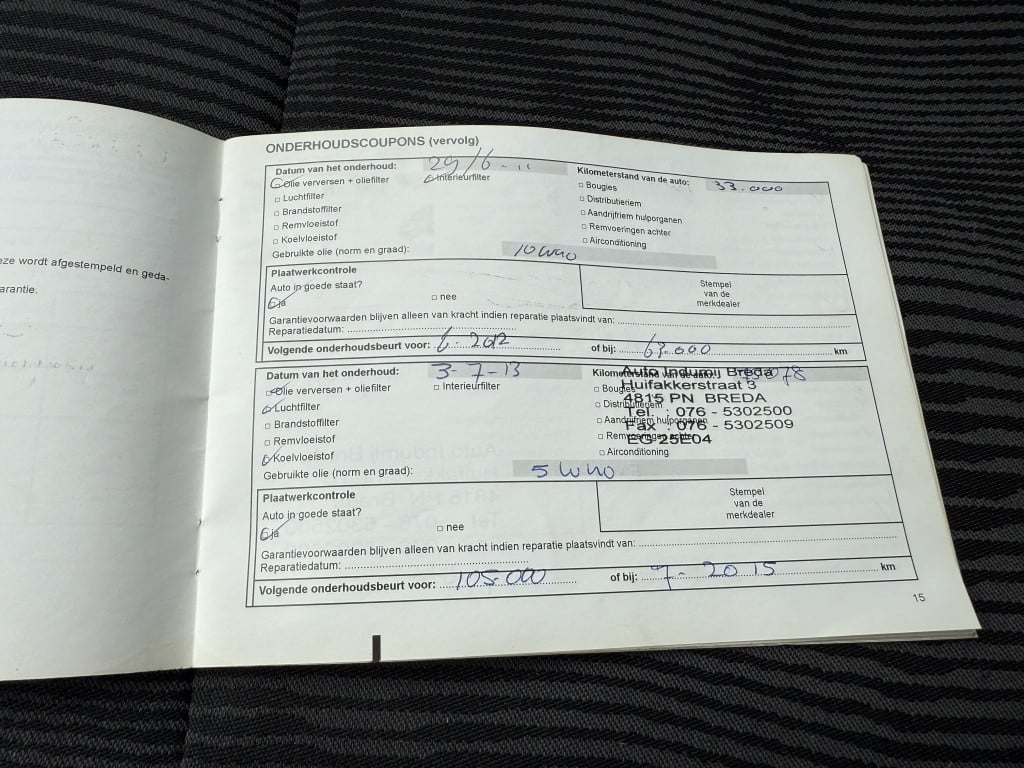 eze wordt afgestempeld en geda-
arantie.
ONDERHOUDSCOUPONS (vervolg)
Datum van het onderhoud: 29/6-11 Kilometerstand van de auto: 33.000
Olie verversen + oliefilter Interieurfilter □ Bougies
□ Luchtfilter □ Distributieriem
□ Brandstoffilter □ Aandrijfriem hulporganen
□ Remvloeistof □ Remvoeringen achter
□ Koelvloeistof □ Airconditioning
Gebruikte olie (norm en graad): 10W40
Plaatwerkcontrole
Auto in goede staat?
ja □ nee
Stempel
van de
merkdealer
Garantievoorwaarden blijven alleen van kracht indien reparatie plaatsvindt van:
Reparatiedatum:
Volgende onderhoudsbeurt voor: 6-2012 of bij: 63.000 km
Datum van het onderhoud: 3-7-13 Kilometerstand van de auto:
Olie verversen + oliefilter □ Interieurfilter □ Bougies
Luchtfilter □ Distributieriem
□ Brandstoffilter □ Aandrijfriem hulporganen
□ Remvloeistof □ Remvoeringen achter
Koelvloeistof □ Airconditioning
Auto Indumij Breda
Huifakkerstraat 3
4815 PN BREDA
Tel. : 076 - 5302500
Fax : 076 - 5302509
EG 25E04
Gebruikte olie (norm en graad): 5W40
Plaatwerkcontrole
Auto in goede staat?
ja □ nee
Stempel
van de
merkdealer
Garantievoorwaarden blijven alleen van kracht indien reparatie plaatsvindt van:
Reparatiedatum:
Volgende onderhoudsbeurt voor: 105.000 of bij: 7-2015 km
15